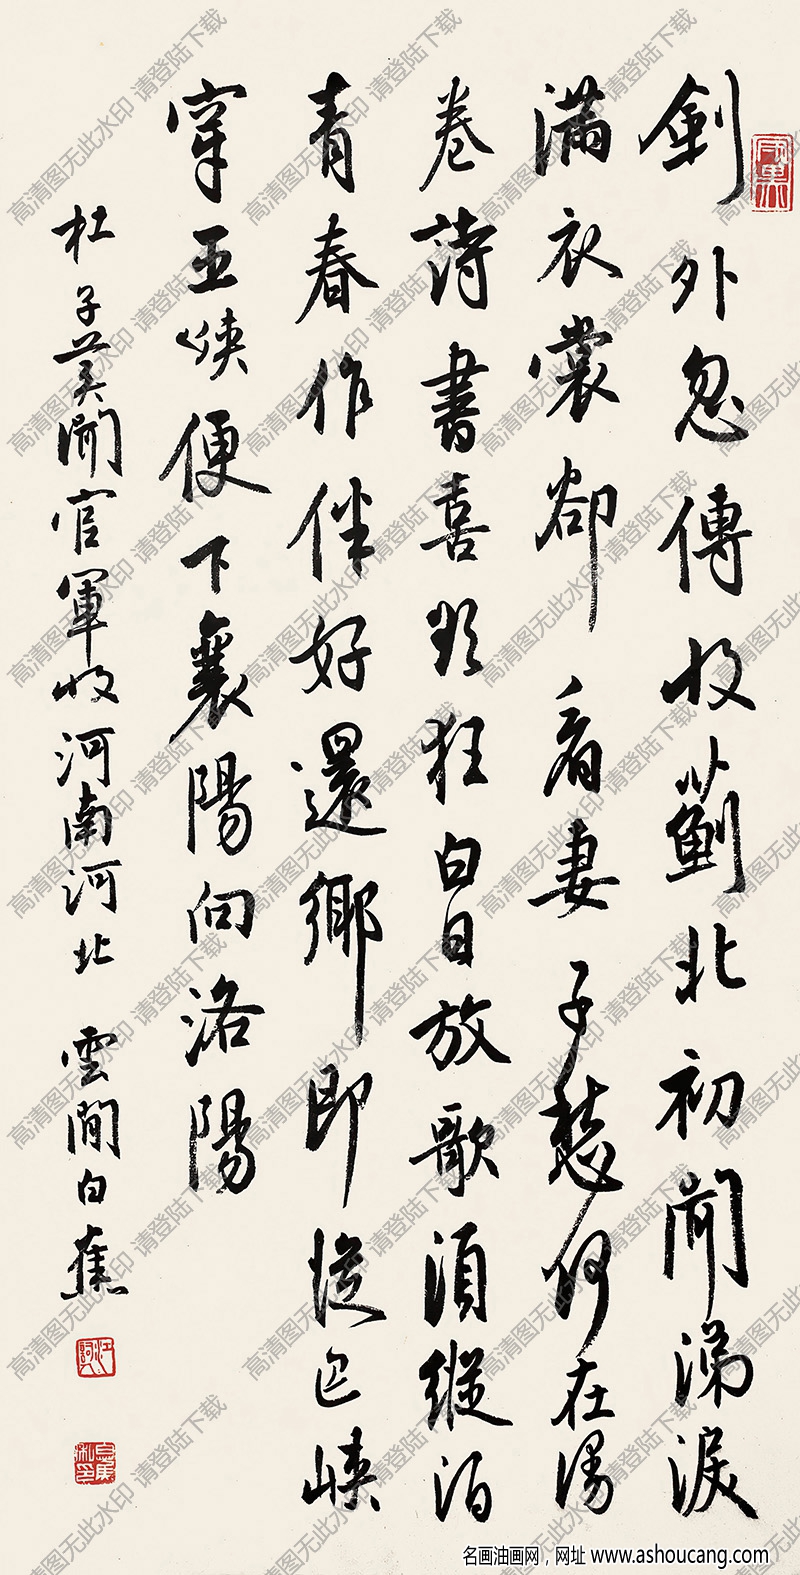 劍外忽傳收薊北初聞涕淚
滿衣裳卻看妻子愁何在漫
卷詩書喜欲狂白日放歌須縱酒
青春作伴好還鄉即從巴峽
穿巫峽便下襄陽向洛陽
杜子美聞官軍收河南河北 雲間白蕉
白蕉私印
高清图无此水印 请登陆下载
名画油画网，网址 www.ashoucang.com